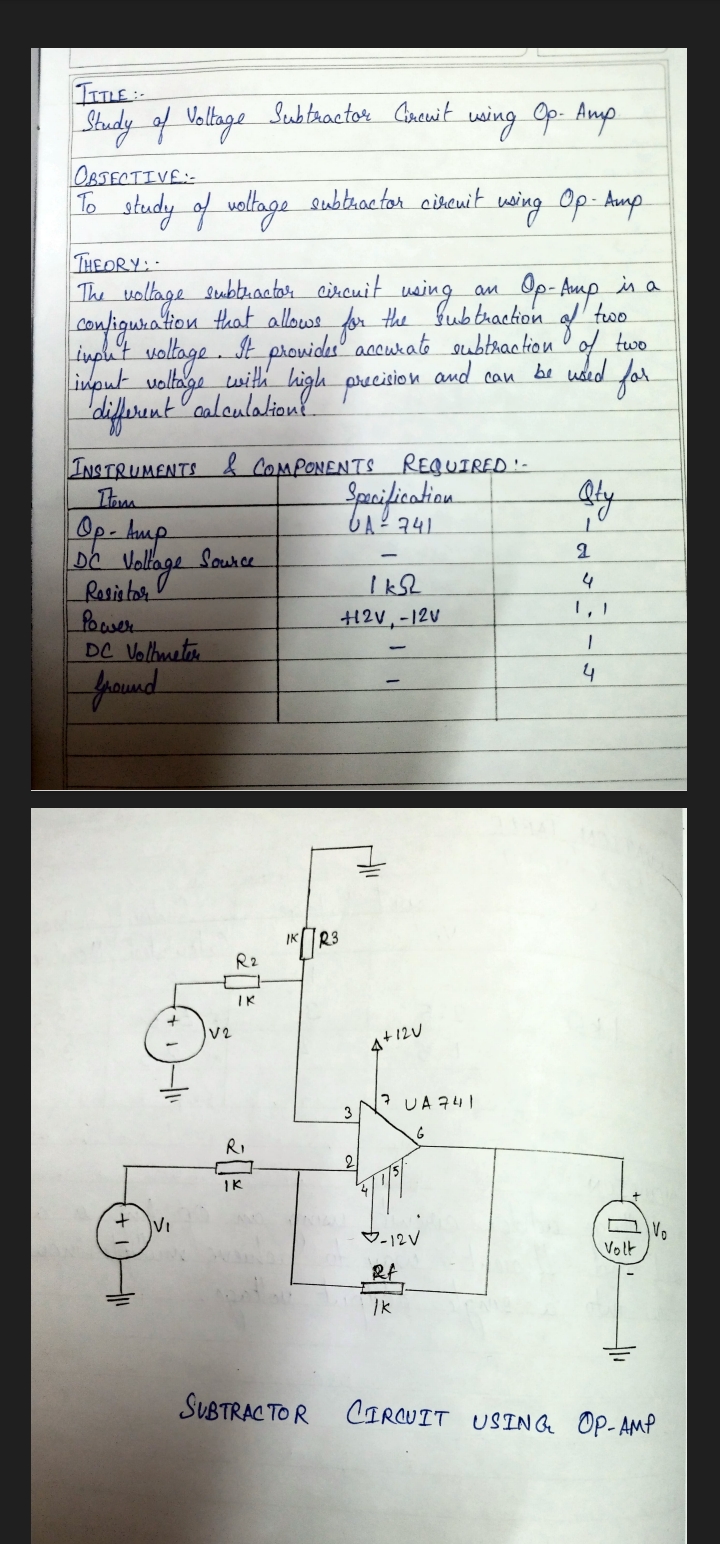 TITLE:-
Study of Voltage Subtractor Circuit using Op-Amp
OBJECTIVE:-
To study of voltage subtractor circuit using Op-Amp
THEORY:-
The voltage subtractor circuit using an Op-Amp is a
configuration that allows for the subtraction of two
input voltage. It provides accurate subtraction of two
input voltage with high precision and can be used for
different calculations.
INSTRUMENTS & COMPONENTS REQUIRED:-
Item Specification Qty
Op-Amp UA-741 1
DC Voltage Source - 2
Resistor 1kΩ 4
Power +12V, -12V 1, 1
DC Voltmeter - 1
Ground - 4
1K R3
R2
1K
+
V2
-
+12V
3 7 UA741
6
R1
2
1K
4 1 5
+
V1
-
-12V
+
V0
Volt
-
Rf
1K
SUBTRACTOR CIRCUIT USING OP-AMP